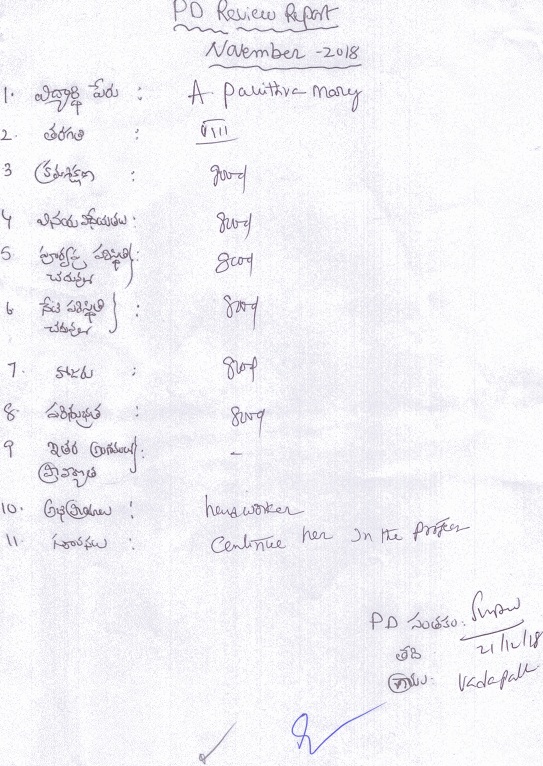 PD Review Report
November - 2018
1. విద్యార్థి పేరు : A. Pavithra Mary
2. తరగతి : VIII
3 క్రమశిక్షణ : good
4 వినయ విధేయతలు : good
5 పూర్వపు పరిస్థితి చదువులో : good
6 నేటి పరిస్థితి చదువులో : good
7. హాజరు : good
8. పరిశుభ్రత : good
9 ఇతర ప్రావీణ్యత : -
10. అభిప్రాయాలు : hard worker
11. సూచనలు : Continue her in the Project
PD సంతకం:
తేది 21/12/18
గ్రామం: Vadapalli